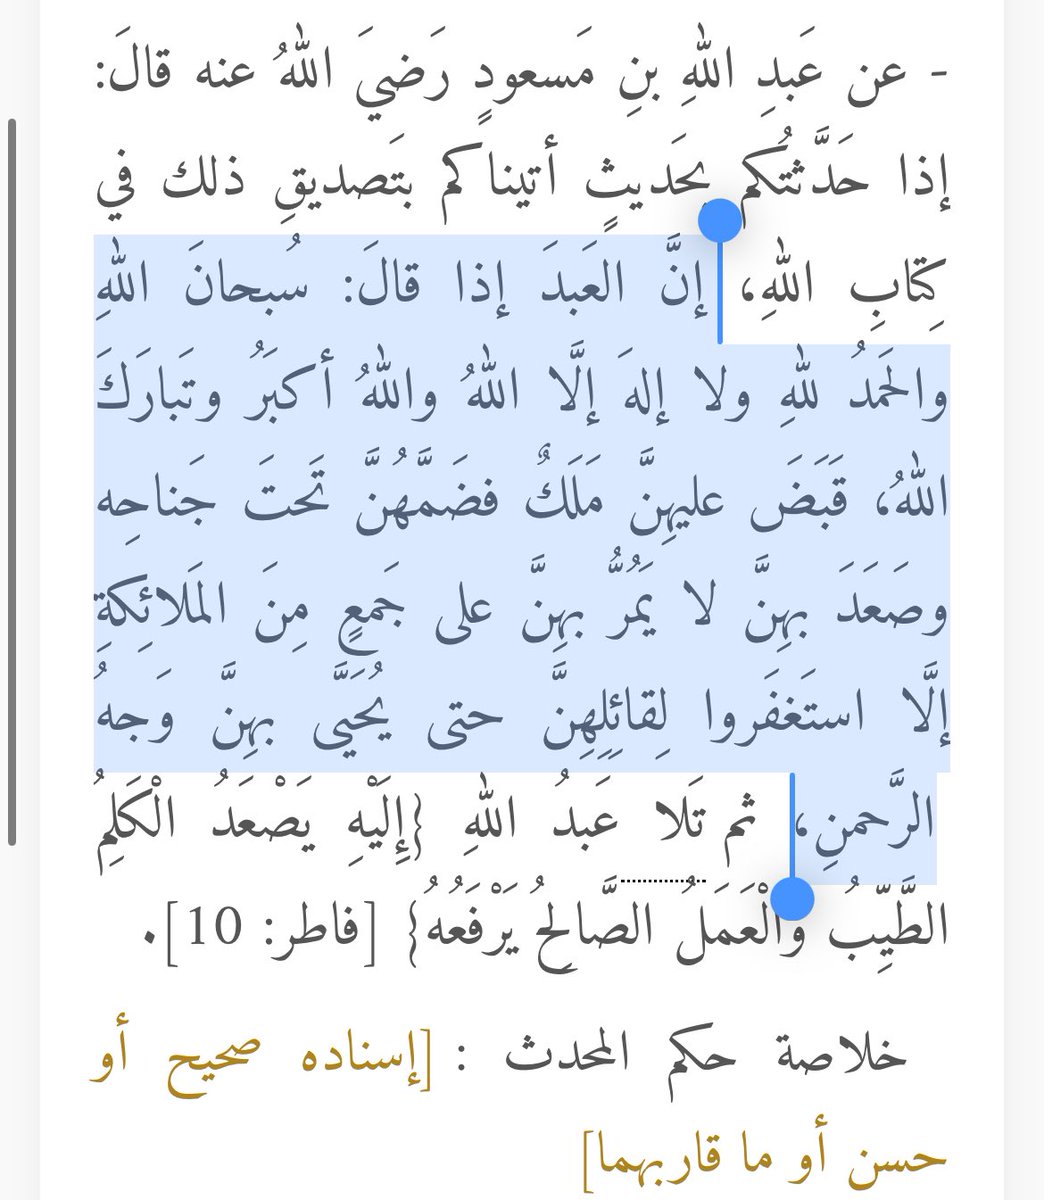 - عن عَبدِ اللهِ بنِ مَسعودٍ رَضيَ اللهُ عنه قالَ:
إذا حَدَّثتُكم بحَديثٍ أتيناكم بتَصديقِ ذلك في
كِتابِ اللهِ، إنَّ العَبدَ إذا قالَ: سُبحانَ اللهِ
والحَمدُ للهِ ولا إلهَ إلَّا اللهُ واللهُ أكبَرُ وتَبارَكَ
اللهُ، قَبَضَ عليهِنَّ مَلَكٌ فضَمَّهُنَّ تَحتَ جَناحِه
وصَعَدَ بهِنَّ لا يَمُرُّ بهِنَّ على جَمعٍ مِنَ المَلائِكةِ
إلَّا استَغفَروا لِقائِلِهِنَّ حتى يُحَيَّى بهِنَّ وَجهُ
الرَّحمنِ، ثم تَلا عَبدُ اللهِ {إِلَيْهِ يَصْعَدُ الْكَلِمُ
الطَّيِّبُ وَالْعَمَلُ الصَّالِحُ يَرْفَعُه} [فاطر: 10].
خلاصة حكم المحدث : [إسناده صحيح أو
حسن أو ما قاربهما]